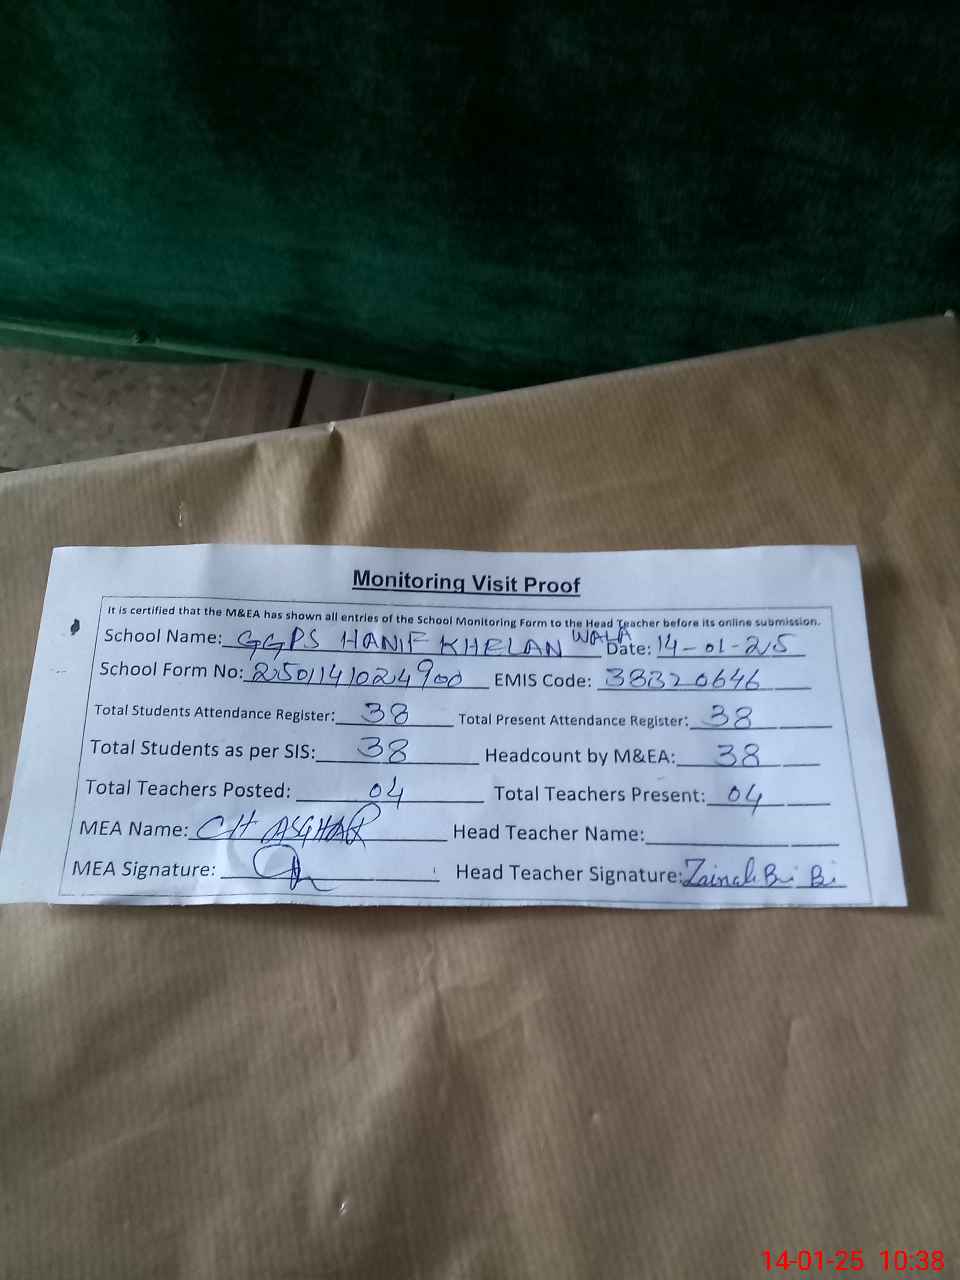 Monitoring Visit Proof
It is certified that the M&EA has shown all entries of the School Monitoring Form to the Head Teacher before its online submission.
School Name: GGPS HANIF KHELAN WALA Date: 14-01-25
School Form No: 2501141024900 EMIS Code: 38320646
Total Students Attendance Register: 38 Total Present Attendance Register: 38
Total Students as per SIS: 38 Headcount by M&EA: 38
Total Teachers Posted: 04 Total Teachers Present: 04
MEA Name: CH ASGHAR Head Teacher Name:
MEA Signature: Head Teacher Signature: Zainab Bi Bi
14-01-25 10:38